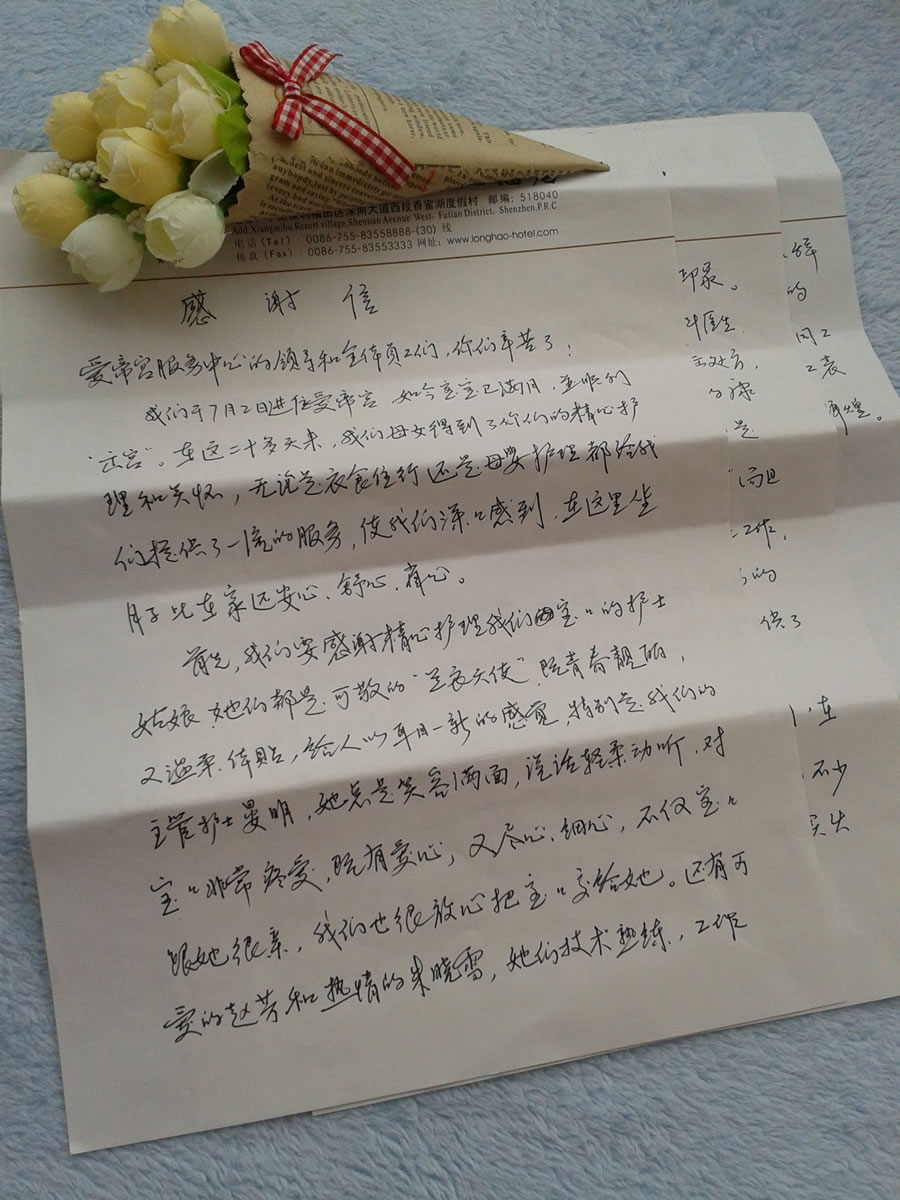 深南大道西段香蜜湖度假村 邮编: 518040
Add Xiangmihu Resort village, Shennan Avenue West, Futian District, Shenzhen, P.R.C
电话 (Tel) : 0086-755-83558888-(30) 线
传真 (Fax) : 0086-755-83553333 网址: www.longhao-hotel.com
感谢信
爱帝宫服务中心的领导和全体员工们，你们辛苦了！
我们于7月2日进住爱帝宫，如今宝宝已满月，并顺利
“出宫”。在这二十多天来，我们母女得到了你们的精心护
理和关怀，无论是衣食住行还是母婴护理都给我
们提供了一流的服务，使我们深深感到，在这里坐
月子比在家还安心、舒心、省心。
首先，我们要感谢精心护理我们宝宝的护士
姑娘，她们都是可敬的“白衣天使”，既青春靓丽，
又温柔体贴，给人以耳目一新的感觉，特别是我们的
主管护士晏明，她总是笑容满面，说话轻柔动听，对
宝宝非常疼爱，既有爱心，又尽心、细心，不仅宝宝
跟她很亲，我们也很放心把宝宝交给她。还有可
爱的赵芳和热情的朱晓雪，她们技术熟练，工作
印象。
医生
是
而且
工作，
的
供了
在
不少
的
同工
辉煌。